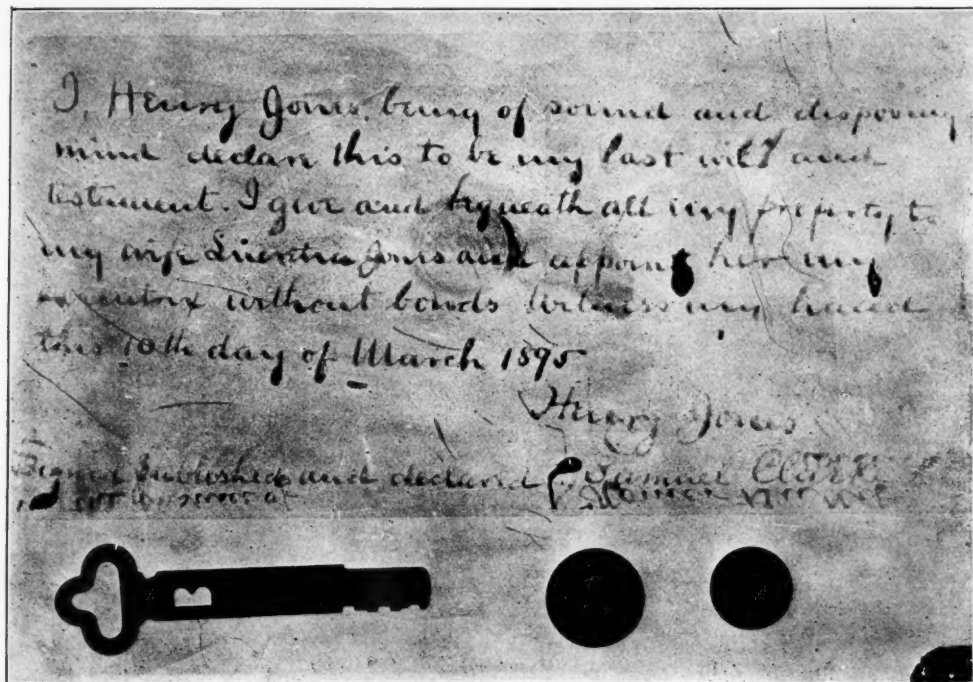 I, Henry Jones, being of sound and disposing
mind declare this to be my last will and
testament. I give and bequeath all my property to
my wife Jones and appoint her my
executrix without bonds Witness my hand
this 10th day of March 1895
Henry Jones.
Signed Published and declared Samuel Clark
in our presence of